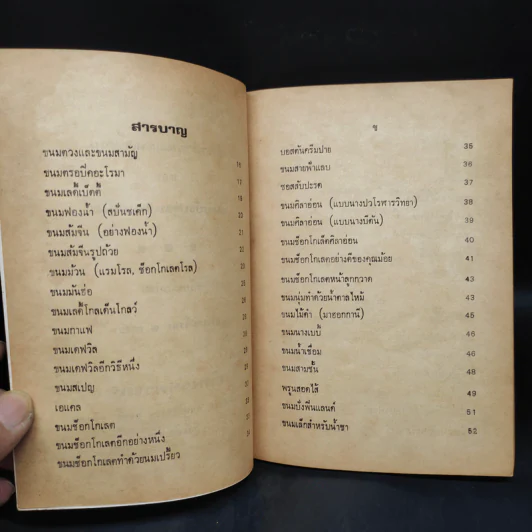 สารบาญ
ขนมตวงและขนมสามัญ
ขนมดรอบี่คอะโรมา
ขนมเลดี้เบ็ตตี้
ขนมฟองน้ำ (สป็นชเค็ก)
ขนมส้มจีน (อย่างฟองน้ำ)
ขนมส้มจีนรูปถ้วย
ขนมม้วน (แรมโรล, ช็อกโกเลตโรล)
ขนมมันฮ่อ
ขนมเลดี้โกลเด็นโกลว์
ขนมกาแฟ
ขนมเดฟวิล
ขนมเดฟวิลอีกวิธีหนึ่ง
ขนมสเปญ
เอแคล
ขนมช็อกโกเลต
ขนมช็อกโกเลตอีกอย่างหนึ่ง
ขนมช็อกโกเลตทำด้วยนมเปรี้ยว
ข
บอสตันครีมปาย 35
ขนมสายฟ้าแลบ 36
ซอสสับปะรด 37
ขนมศิลาอ่อน (แบบนางปวโรฬารวิทยา) 38
ขนมศิลาอ่อน (แบบนางบีตัน) 39
ขนมช็อกโกเล็ตศิลาอ่อน 40
ขนมช็อกโกเลตอย่างดีของคุณม้อย 41
ขนมช็อกโกเลตหน้าลูกกวาด 43
ขนมนุ่มทำด้วยน้ำตาลไหม้ 43
ขนมไม้ดำ (มาฮอกกานี) 45
ขนมนางเบบี้ 46
ขนมน้ำเชื่อม 46
ขนมสามชั้น 48
พรูนสอดไส้ 49
ขนมบิ๋งพีนแลนด์ 51
ขนมเล็กสำหรับน้ำชา 52